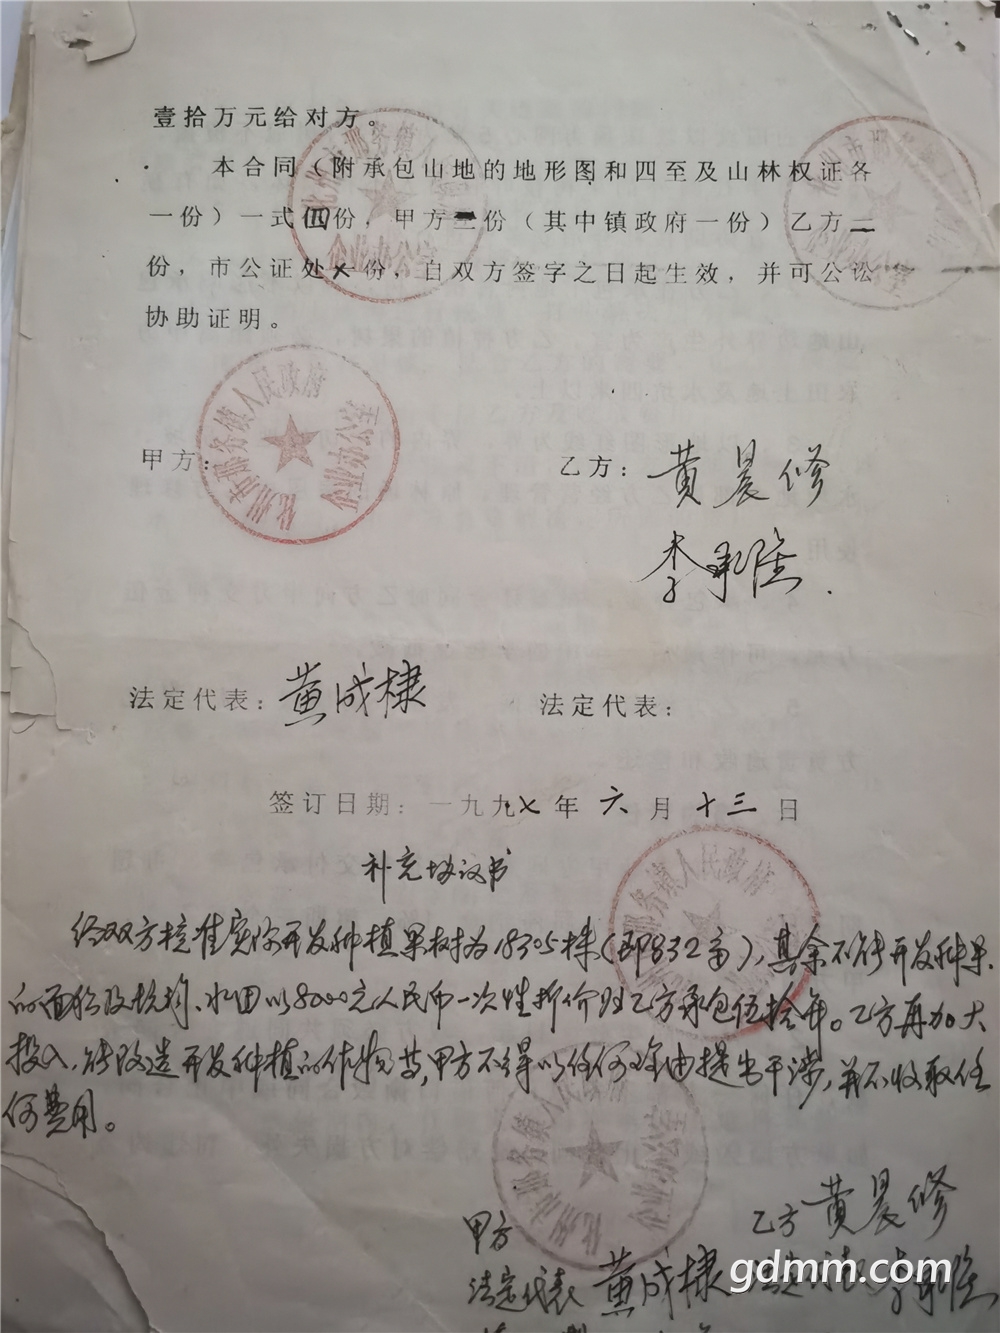 壹拾万元给对方。
本合同（附承包山地的地形图和四至及山林权证各
一份）一式四份，甲方二份（其中镇政府一份）乙方二
份，市公证处 份，自双方签字之日起生效，并可公讼
协助证明。
化州市那务镇人民政府
企业办公室
甲方：
乙方：黄晨修
李承
法定代表：黄成棣
法定代表：
签订日期：一九九七年六月十三日
补充协议书
经双方核准实际开发种植果树为18305株（即832亩），其余不能开发种果
的面积及坑垌、水田以8000元人民币一次性折价账乙方承包伍拾年。乙方再加大
投入，能改造开发种植的作物等，甲方不得以任何理由提出干涉，并不收取任
何费用。
化州市那务镇人民政府
企业办公室
甲方
乙方黄晨修
法定代表黄成棣
法定代表李承
gdmm.com